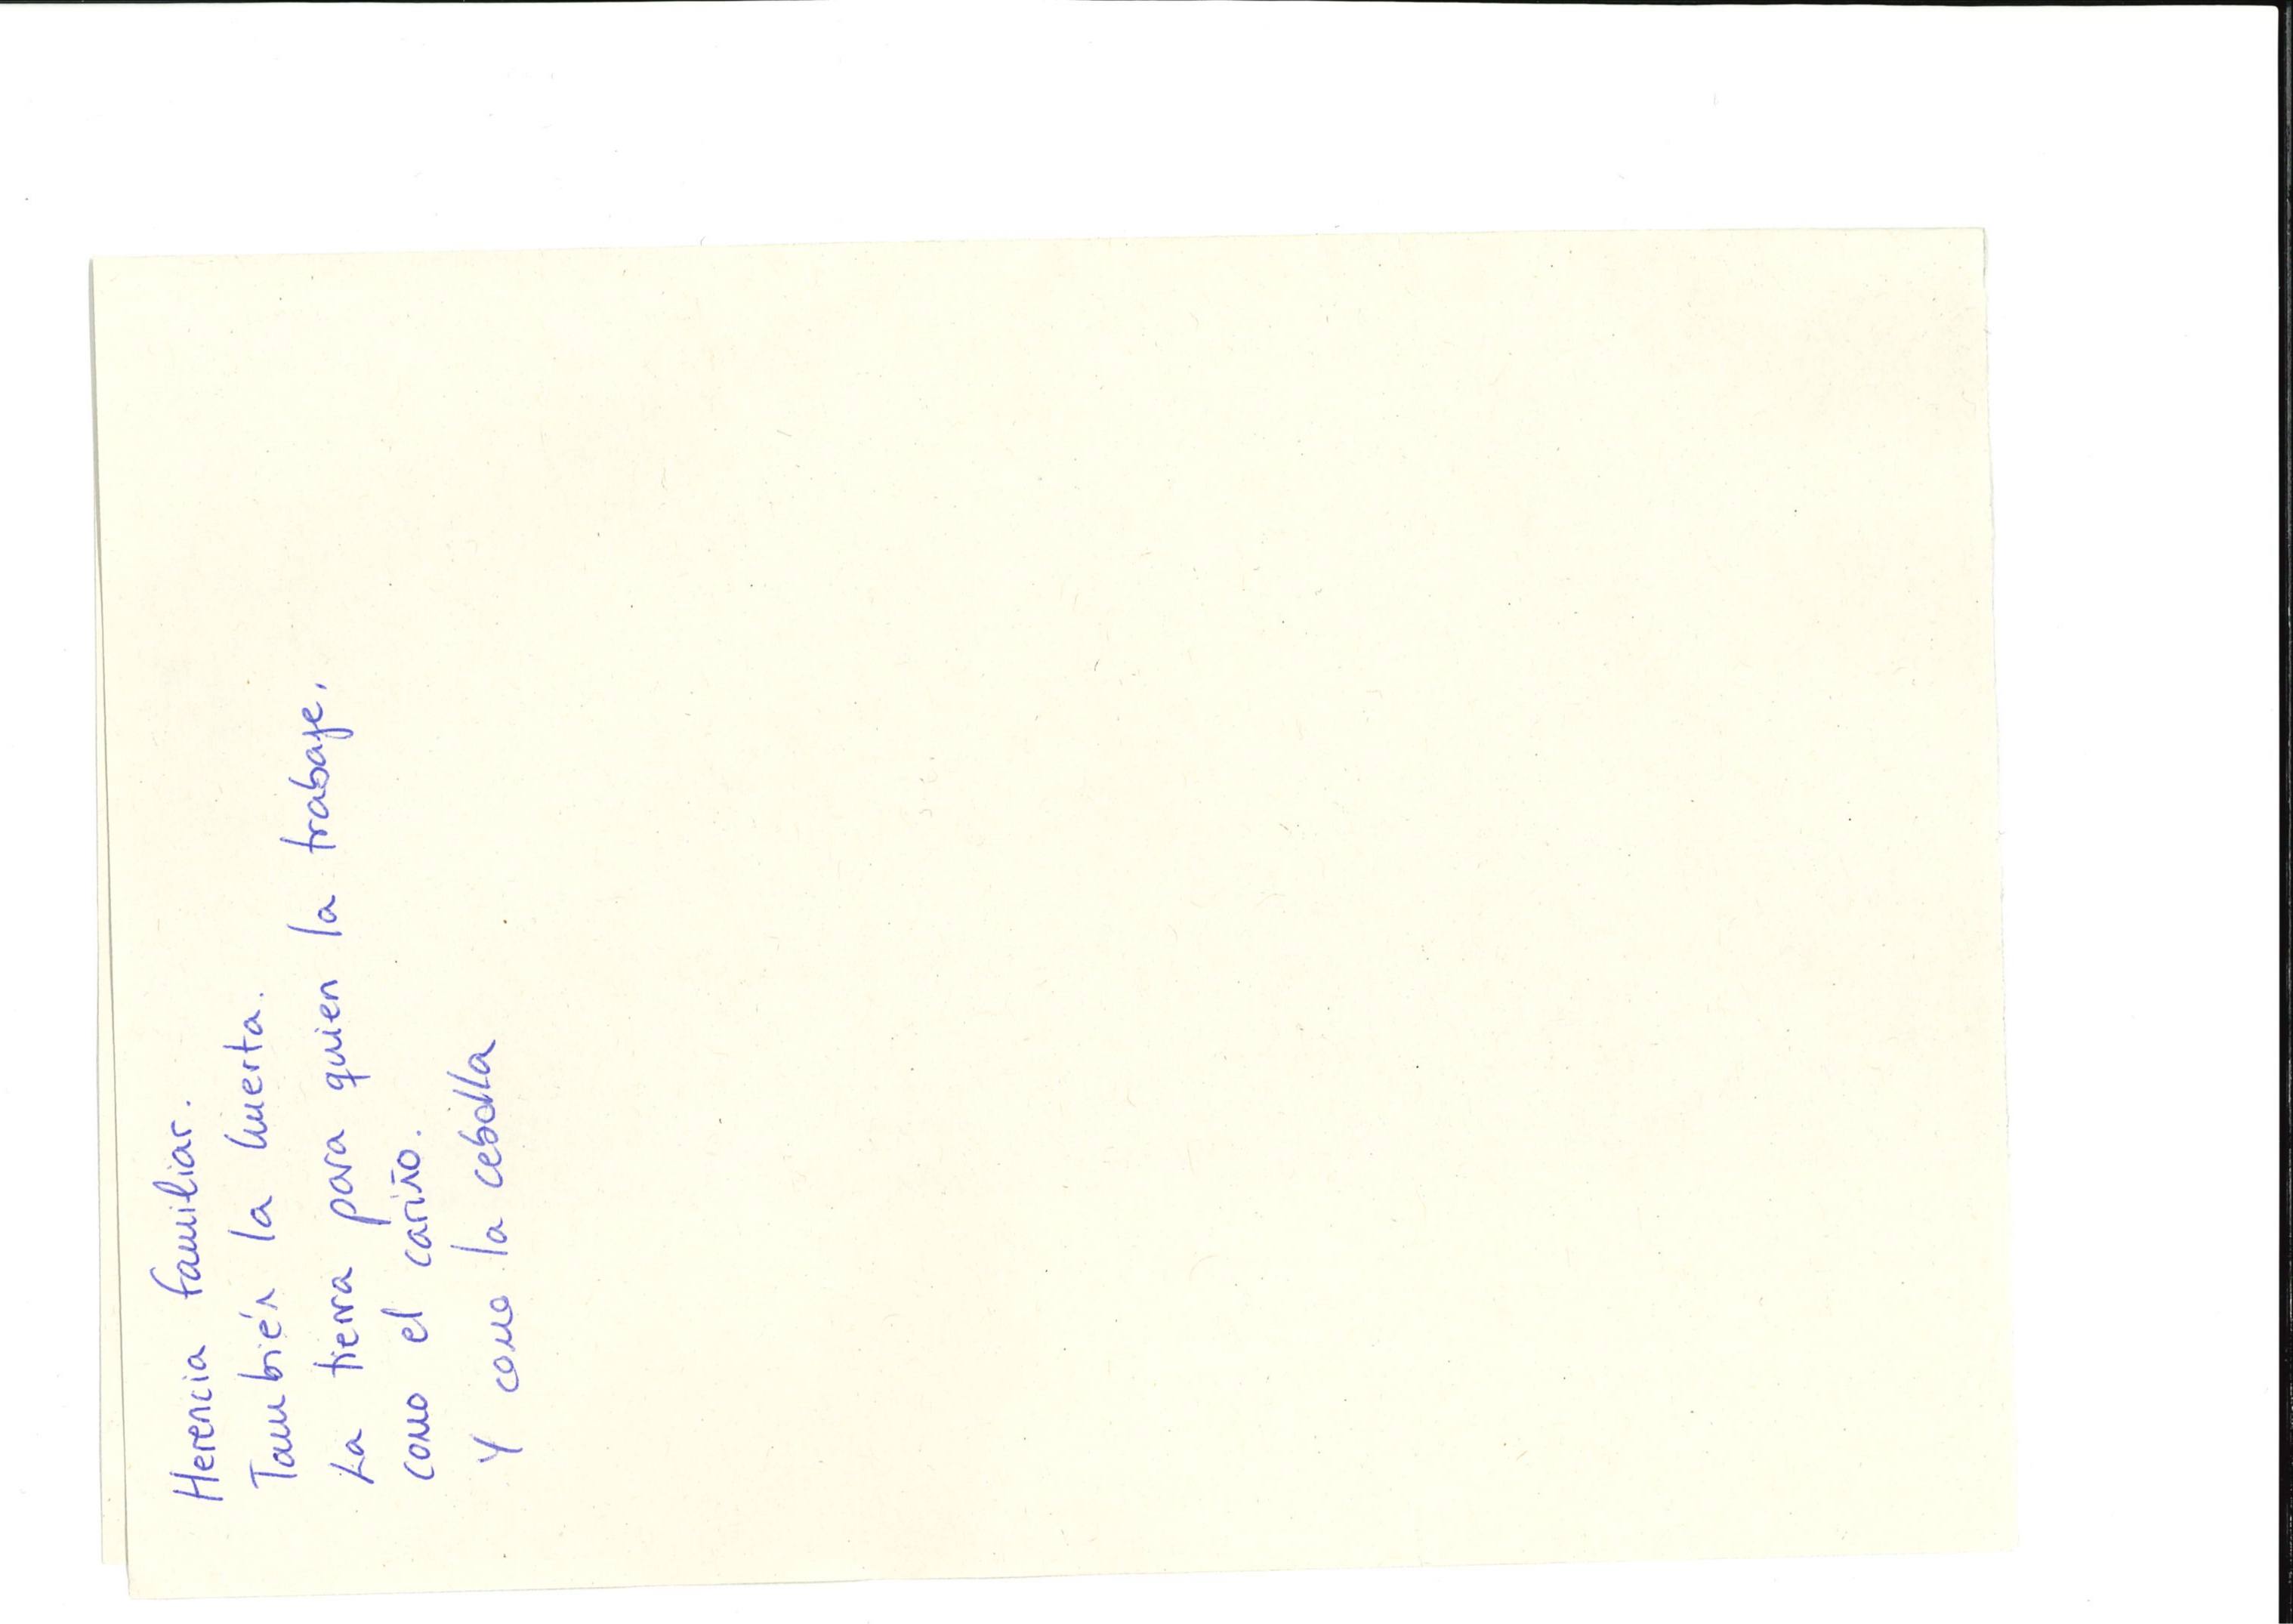 Herencia familiar.
También la huerta.
La tierra para quien la trabaje,
como el cariño.
Y como la cebolla